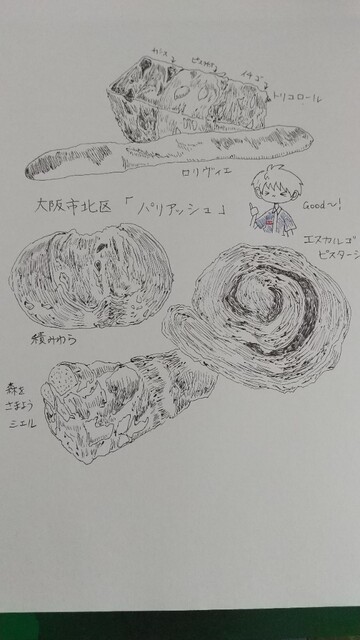 カシス
ピスタチオ
イチゴ
トリコロール
ロリヴィエ
大阪市北区「パリアッシュ」
Good〜!
エスカルゴ
ピスターシュ
積みわら
森を
さまよう
ミエル